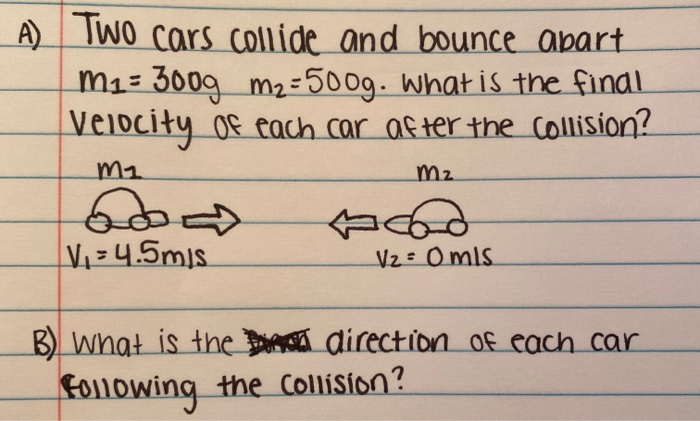 A) Two cars collide and bounce apart
m1 = 300g m2 = 500g. What is the final
velocity of each car after the collision?
m1 m2
V1 = 4.5m/s V2 = 0m/s
B) What is the direction of each car
following the collision?